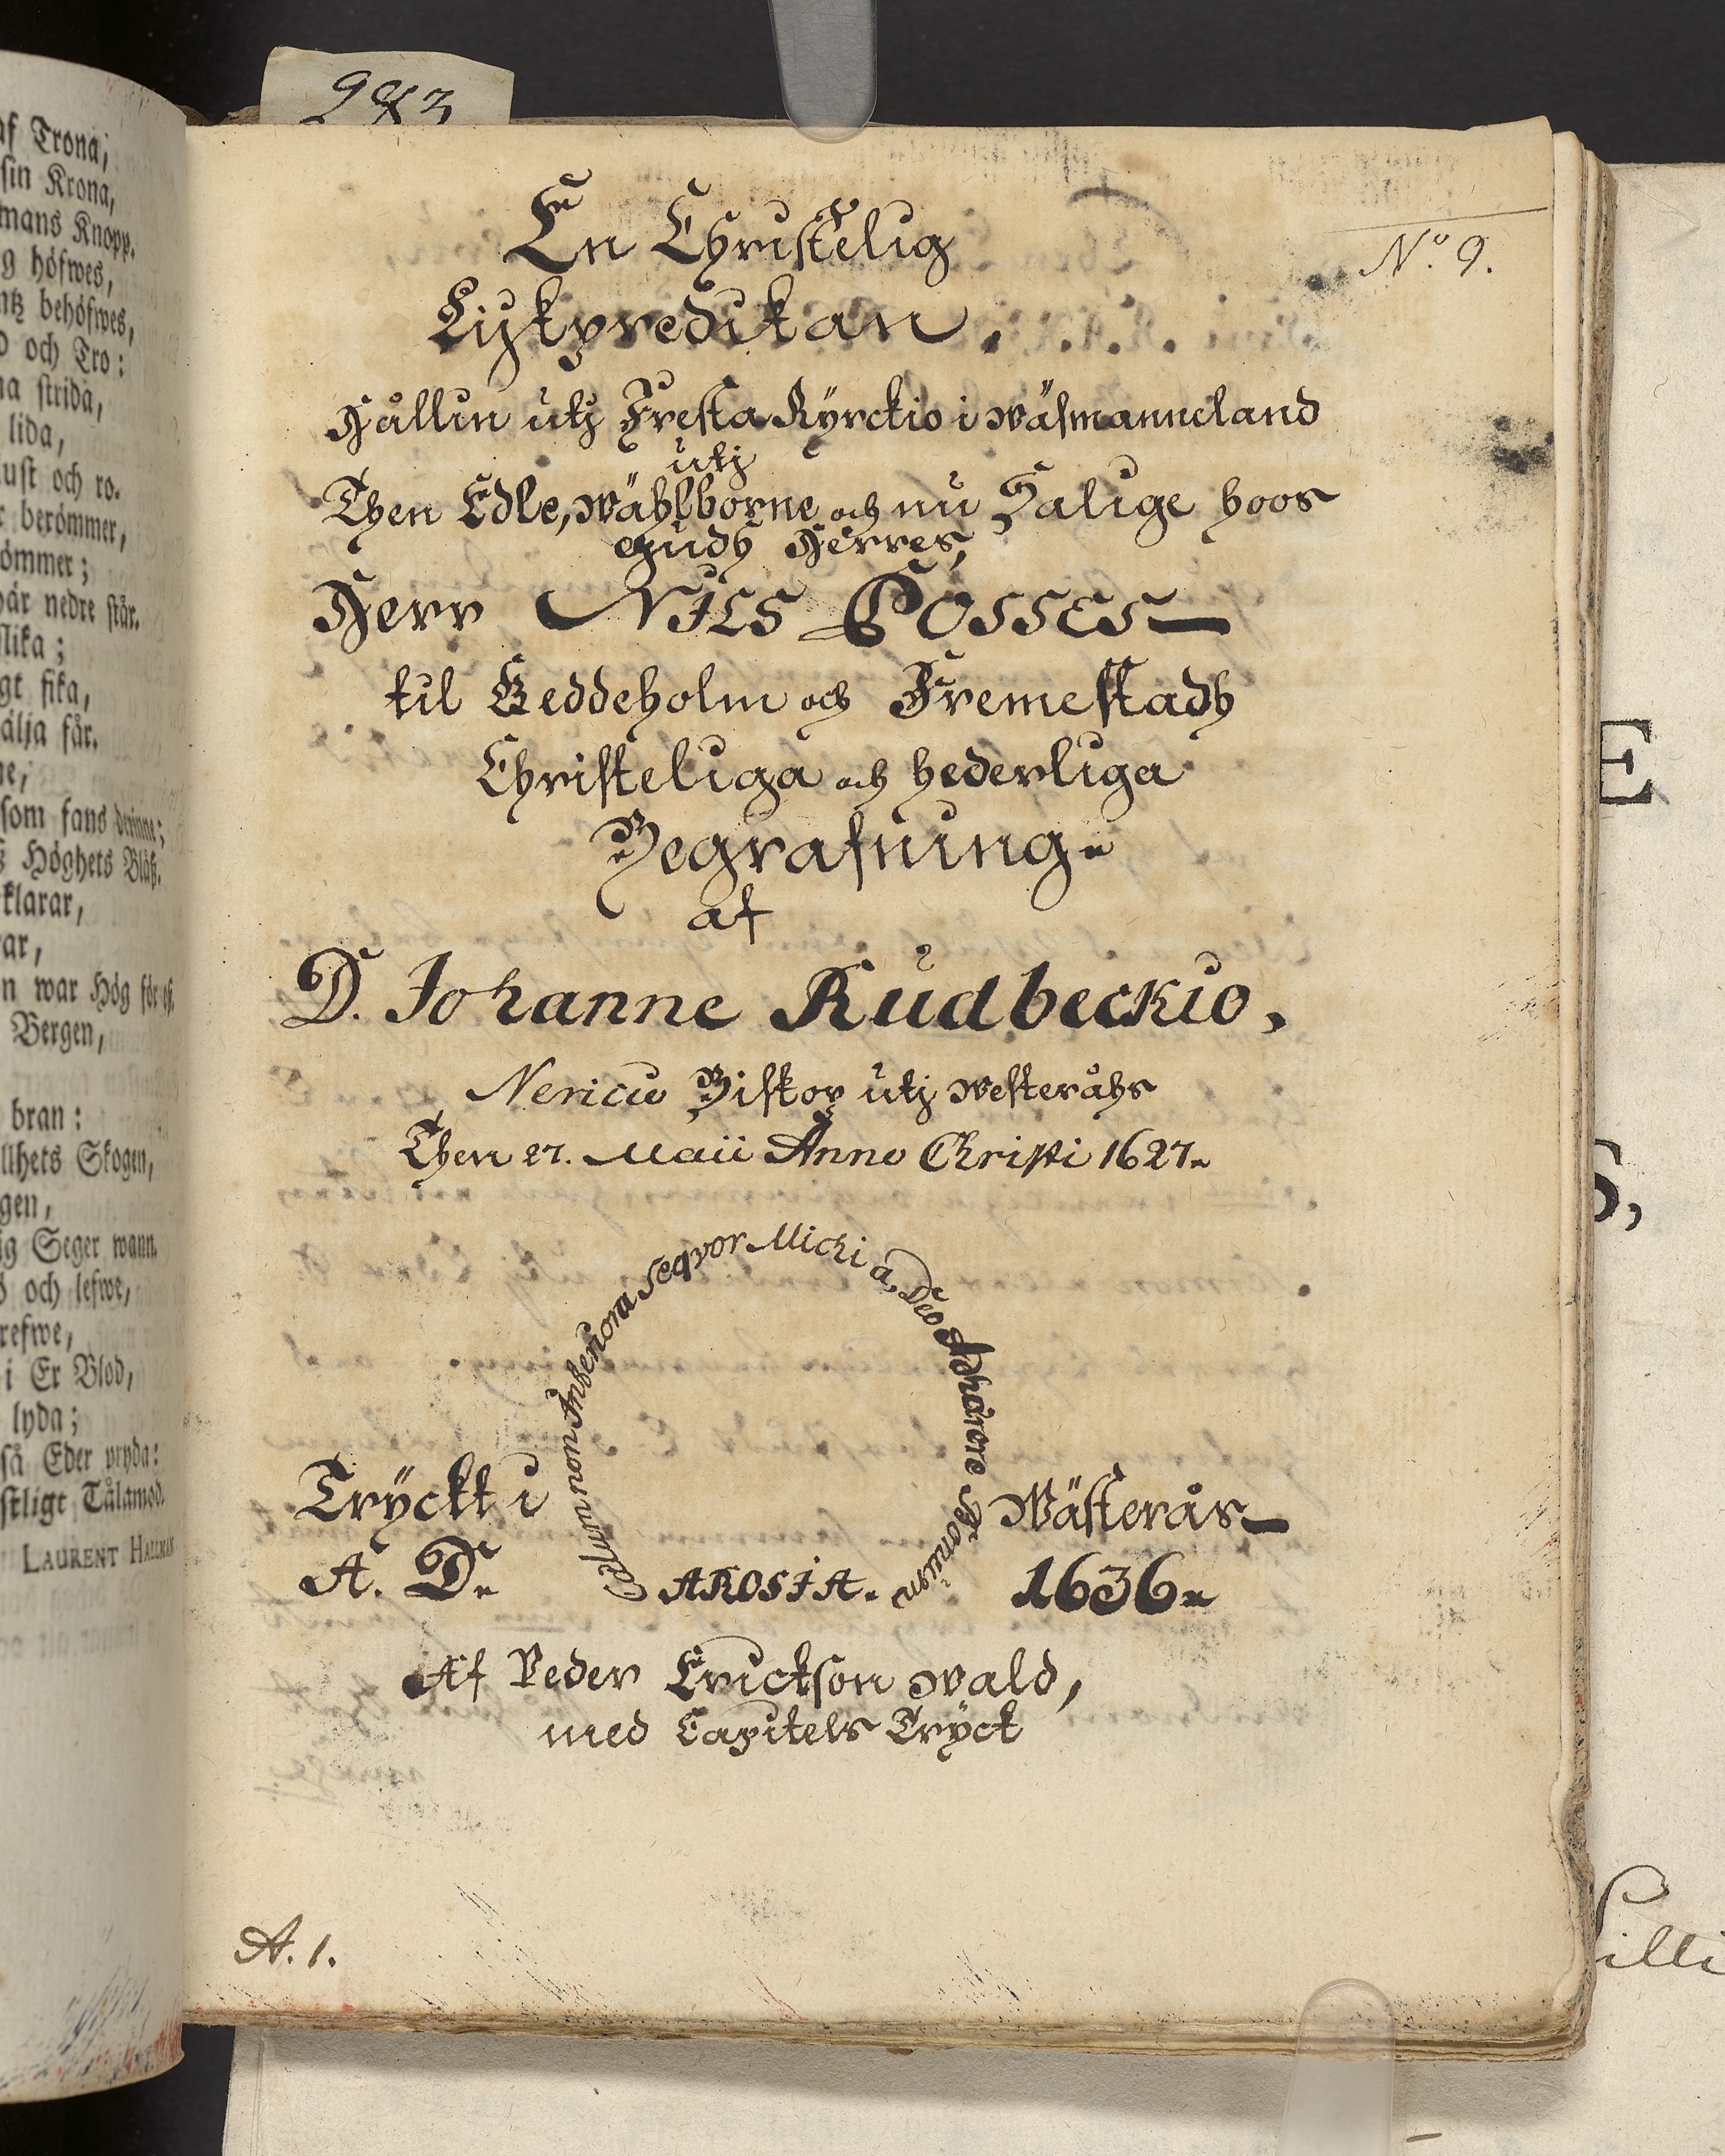 af Trona;
sin Krona,
mans Knopp.
g höfwes,
ntz behöfwes,
D och Tro:
na strida,
lida,
lust och ro.
r berömmer,
ömmer;
här nedre står.
slika;
gt fika,
älja får.
ne,
som fans derinne;
s Höghets Blåß.
klarar,
rar,
n war Hög för eß.
Bergen,
bran:
llhets Skogen,
gen,
ig Seger wann.
d och lefwe,
refwe,
i Er Blod,
lyda;
så Eder pryda:
stligt Tålamod.
LAURENT HALLMAN
283
No. 9.
En Christelig
Lijkpredikan,
Hållin utj Fresta Kyrckio i Wäsmanneland
utj
Then Edle, Wählborne och nu Salige hoos
Gudh Herres,
Herr NILS POSSES
til Geddeholm och Fremestadh
Christeliga och hederliga
Begrafning.
af
D. Johanne Rudbeckio,
Nericio Biskop utj Westeråhs
Then 27. Maii Anno Christi 1627.
Cælum non Inferiora Seqvor Michi a Deo Adhärere Bonum
Tryckt i Wästerås
A. D. AROSIA. 1636.
Af Peder Erickson Wald,
med Capitels Tryck
A. 1.
E
S,
illi